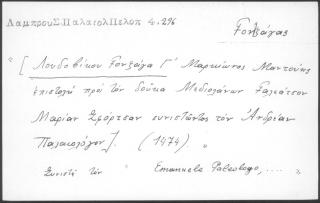 Λαμπρου Σ. Παλαιολ Πελοπ 4.296
Γονζάγας
" [ Λουδοβίκου Γονζάγα Γ΄ Μαρκίωνος Μαντούης
ἐπιστολὴ πρὸς τὸν δοῦκα Μεδιολάνων Γαλεάτσον
Μαρίαν Σφόρτσαν συνιστῶντος τὸν Ἀνδρέαν
Παλαιολόγον]. (1474) "
Συνιστᾷ τὸν " Emanuele Paleologo, .... "